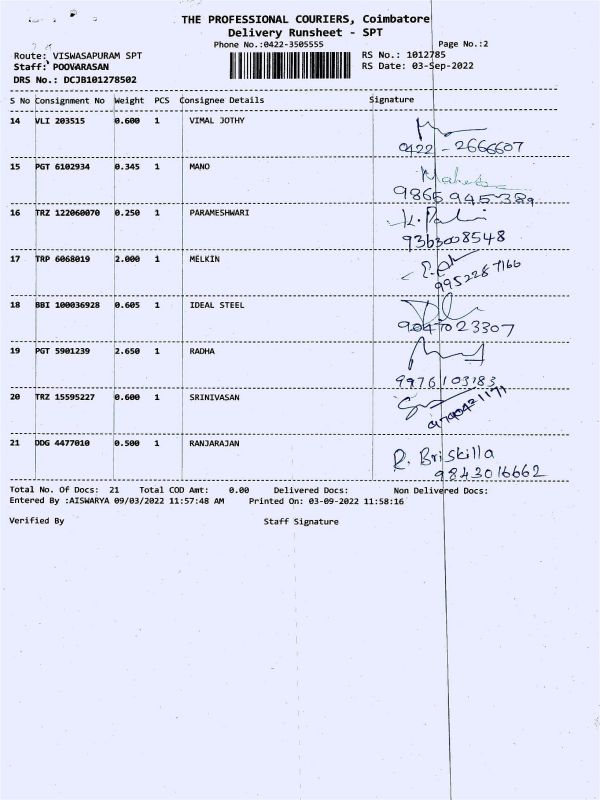 THE PROFESSIONAL COURIERS, Coimbatore
Delivery Runsheet - SPT
Phone No.:0422-3505555 Page No.:2
Route: VISWASAPURAM SPT RS No.: 1012785
Staff: POOVARASAN RS Date: 03-Sep-2022
DRS No.: DCJB101278502
S No Consignment No Weight PCS Consignee Details Signature
14 VLI 203515 0.600 1 VIMAL JOTHY
0422 - 2666607
15 PGT 6102934 0.345 1 MANO
9865 945 389
16 TRZ 122060070 0.250 1 PARAMESHWARI
9363008548
17 TRP 6068019 2.000 1 MELKIN
9952287166
18 BBI 100036928 0.605 1 IDEAL STEEL
9047023307
19 PGT 5901239 2.650 1 RADHA
9976103183
20 TRZ 15595227 0.600 1 SRINIVASAN
21 DDG 4477010 0.500 1 RANJARAJAN R. Briskilla
9843016662
Total No. Of Docs: 21 Total COD Amt: 0.00 Delivered Docs: Non Delivered Docs:
Entered By :AISWARYA 09/03/2022 11:57:48 AM Printed On: 03-09-2022 11:58:16
Verified By Staff Signature